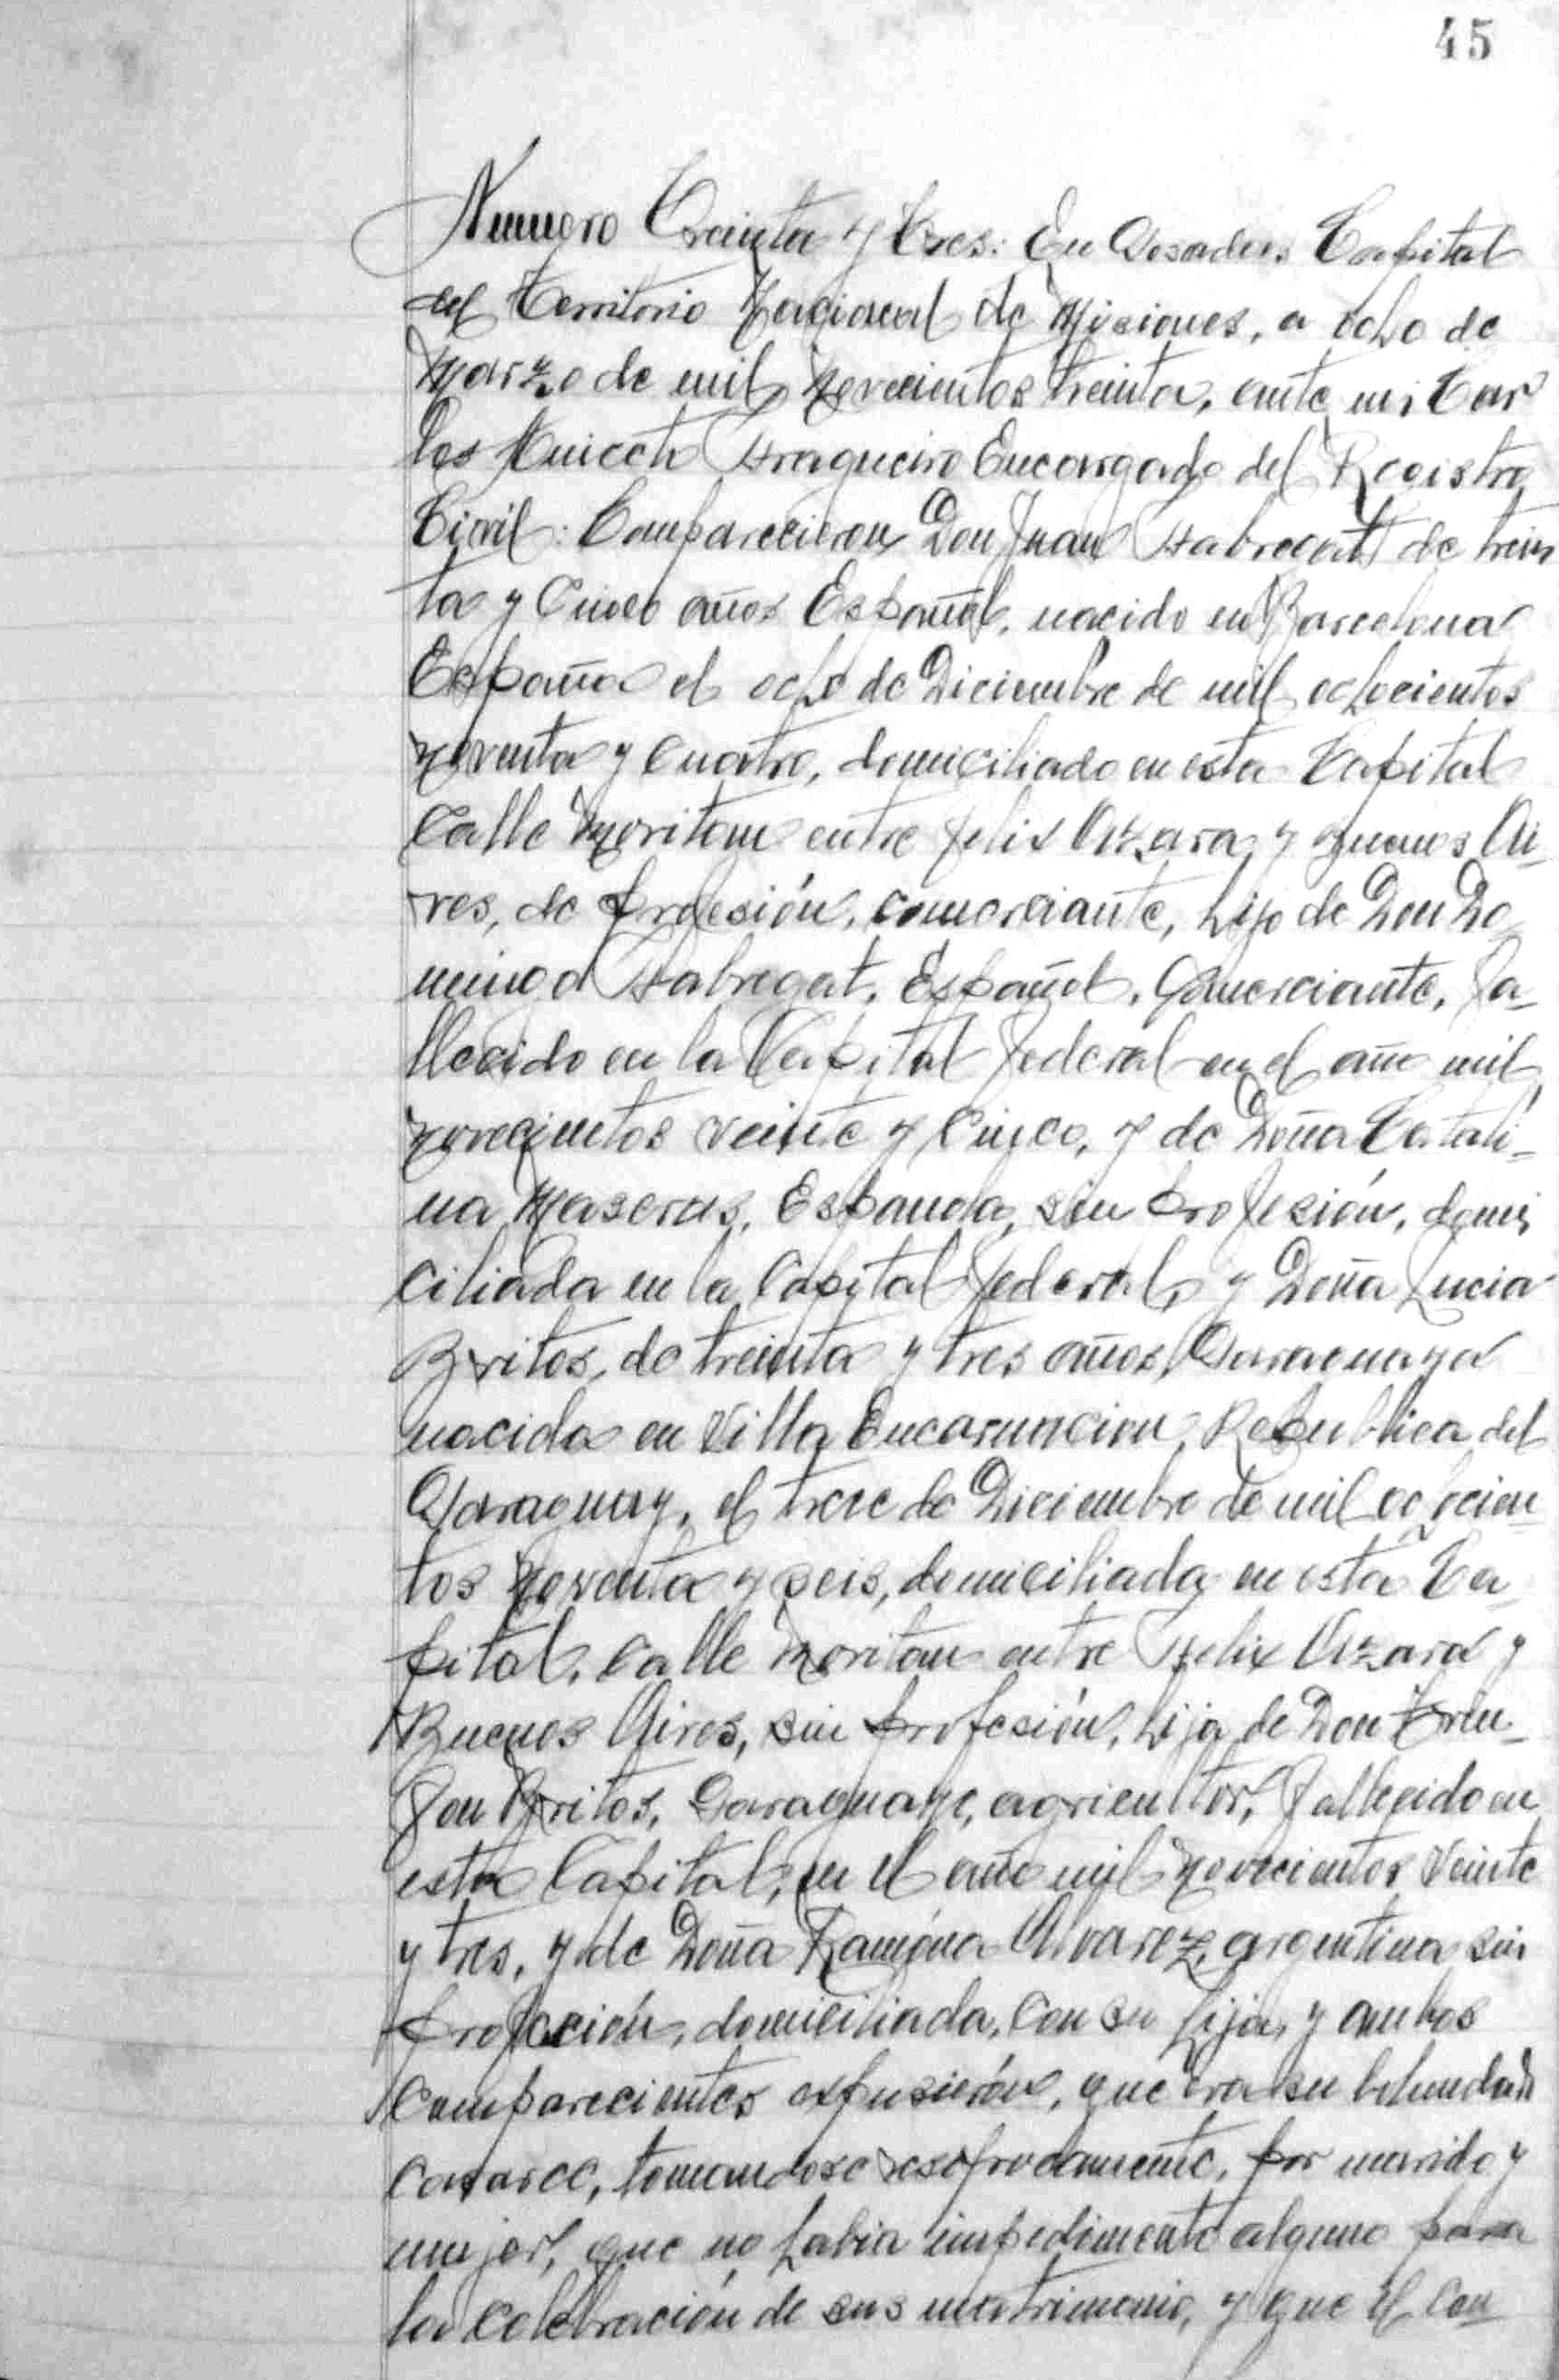 45
Numero Treinta y tres: En Posadas Capital
del Territorio Nacional de Misiones, a ocho de
Marzo de mil novecientos treinta, ante mi Car
los Fragueiro Encargado del Registro
Civil: Comparecieron Don Juan Fabregat de trein
ta y Cinco años Español, nacido en Barcelona
España el ocho de Diciembre de mil ochocientos
noventa y cuatro, domiciliado en esta Capital
Calle entre Felix Azara y Buenos Ai-
res, de profesión, comerciante, hijo de Don Do
mingo Fabregat, Español, Comerciante, fa-
llecido en la Capital federal en el año mil
novecientos veinte y Cinco, y de Doña Catali-
na Maseras, Española, sin profesión, domi
ciliada en la Capital federal, y Doña Lucia
Britos, de treinta y tres años, Paraguaya
nacida en Villa Encarnacion, Republica del
Paraguay, el trece de Diciembre de mil ochocien-
tos noventa y seis, domiciliada en esta Ca-
pital, calle entre Felix Azara y
Buenos Aires, sin profesión, hija de Don
Britos, Paraguayo, agricultor, fallecido en
esta Capital, en el año mil novecientos veinte
y tres, y de Doña Ramóna Alvarez, argentina sin
profecion, domiciliada, con su hija, y ambos
Comparecientes expusierón, que era su bolundad
Casarce, tomandose resiprocamente, por marido y
mujer, que no habia impedimento alguno para
la Celebración de sus matrimonio, y que el Con